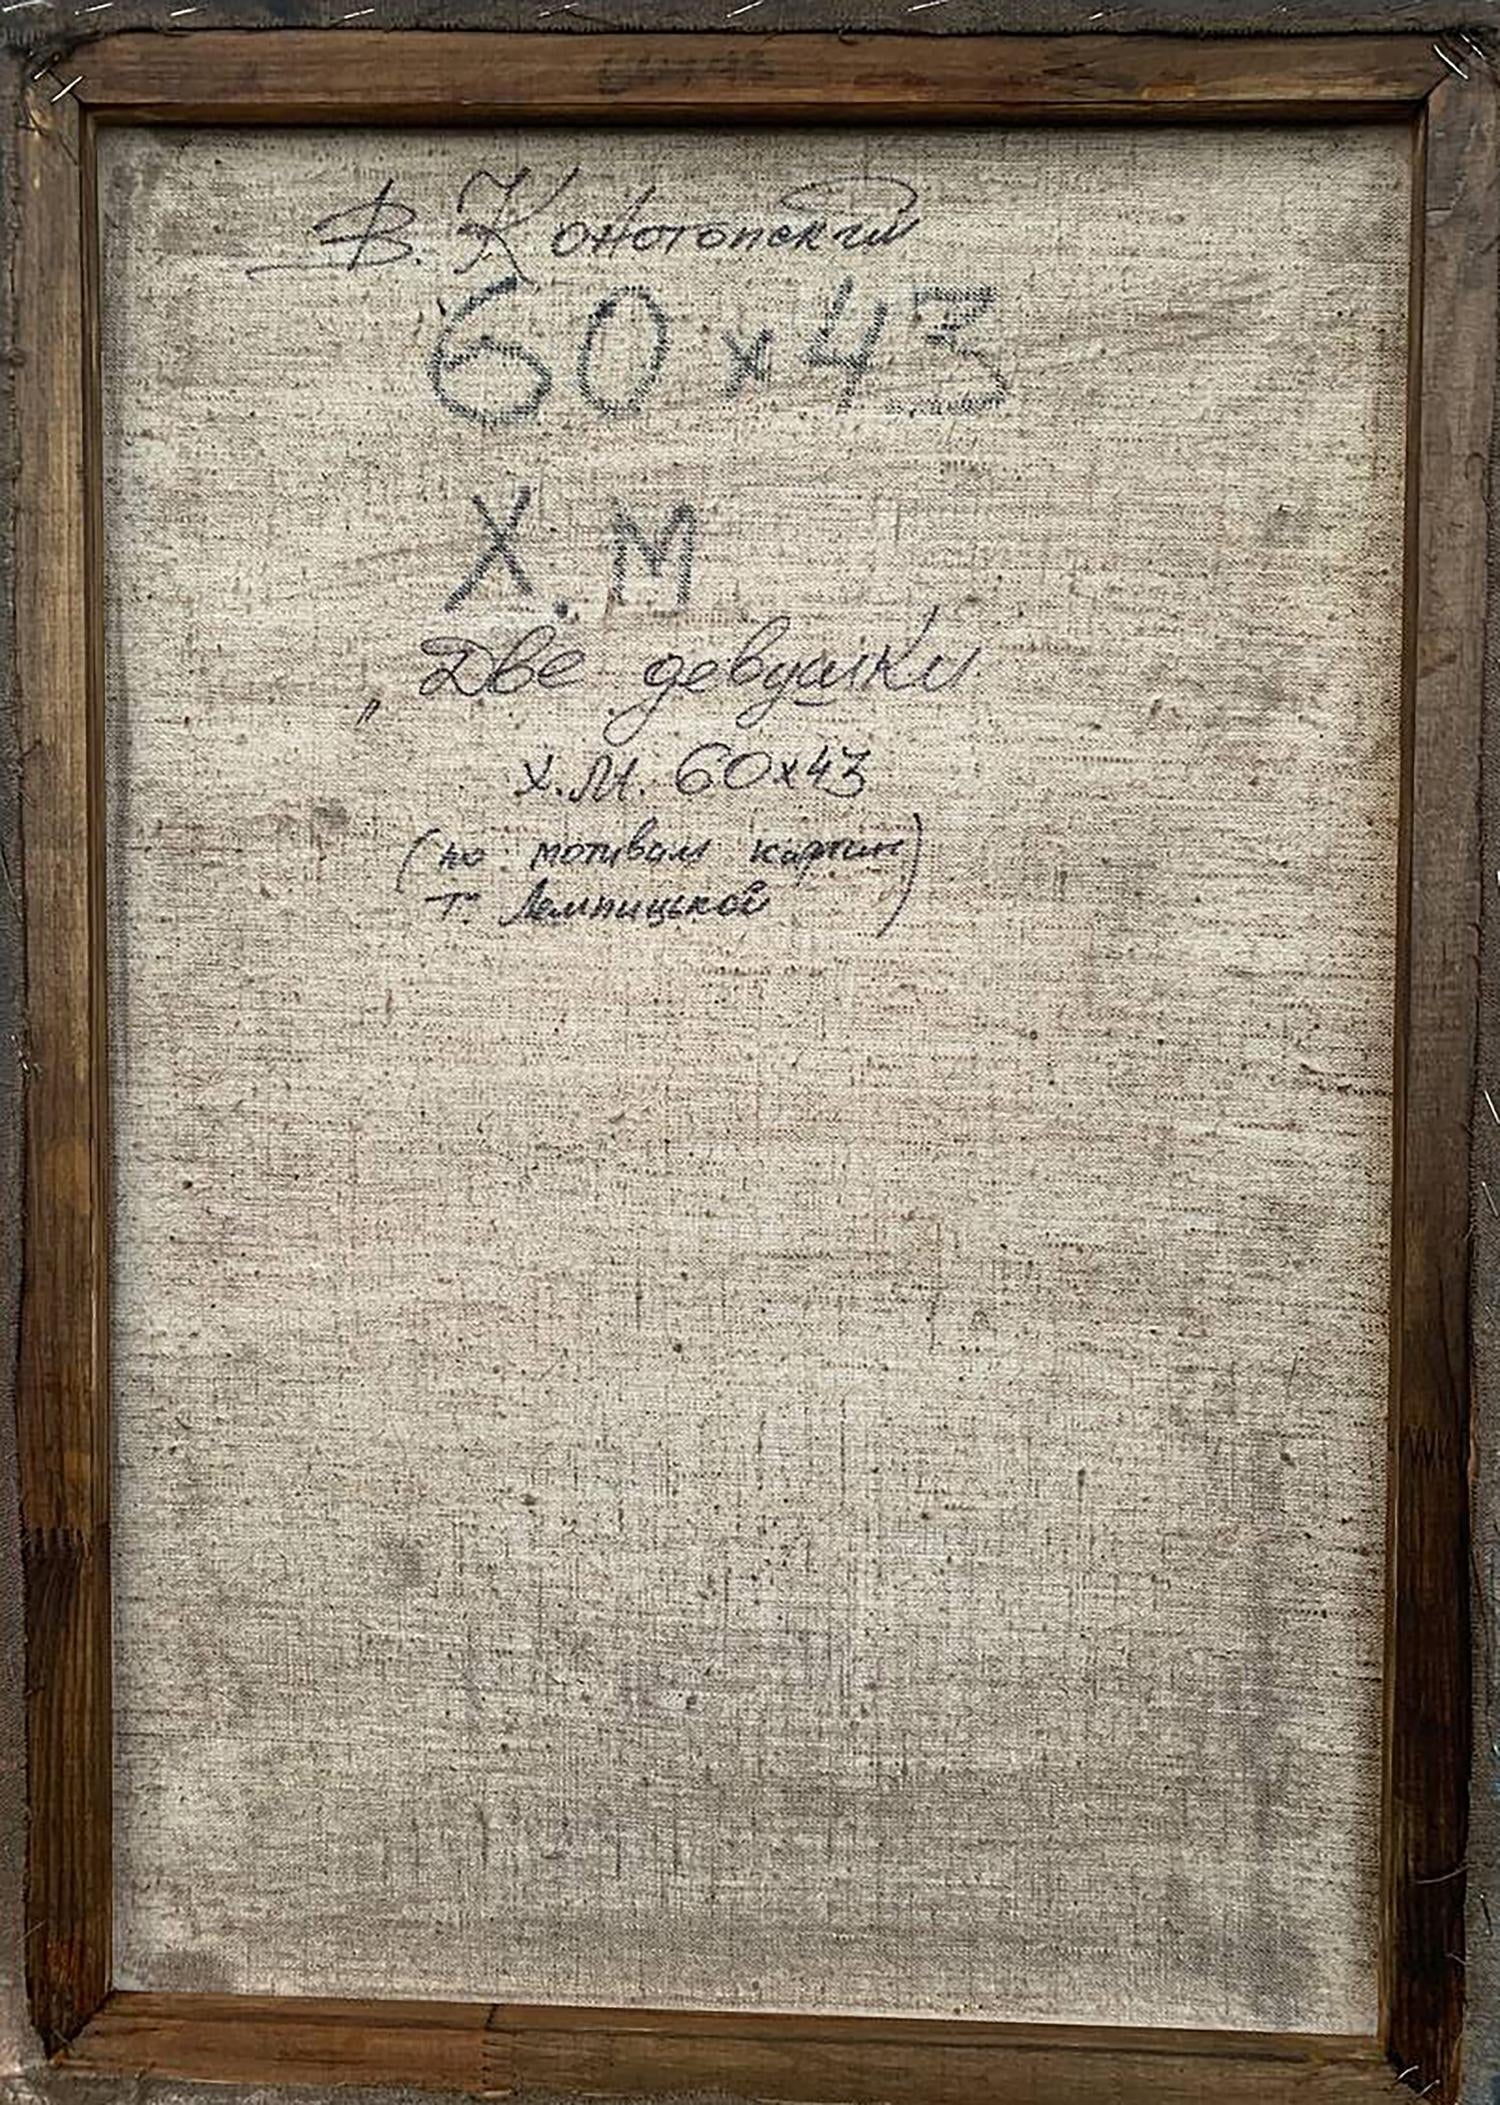 В. Конотопский
60х43
Х.М
„Две девушки
х.м. 60х43
(по мотивам картин
Т. Лемпицькой)